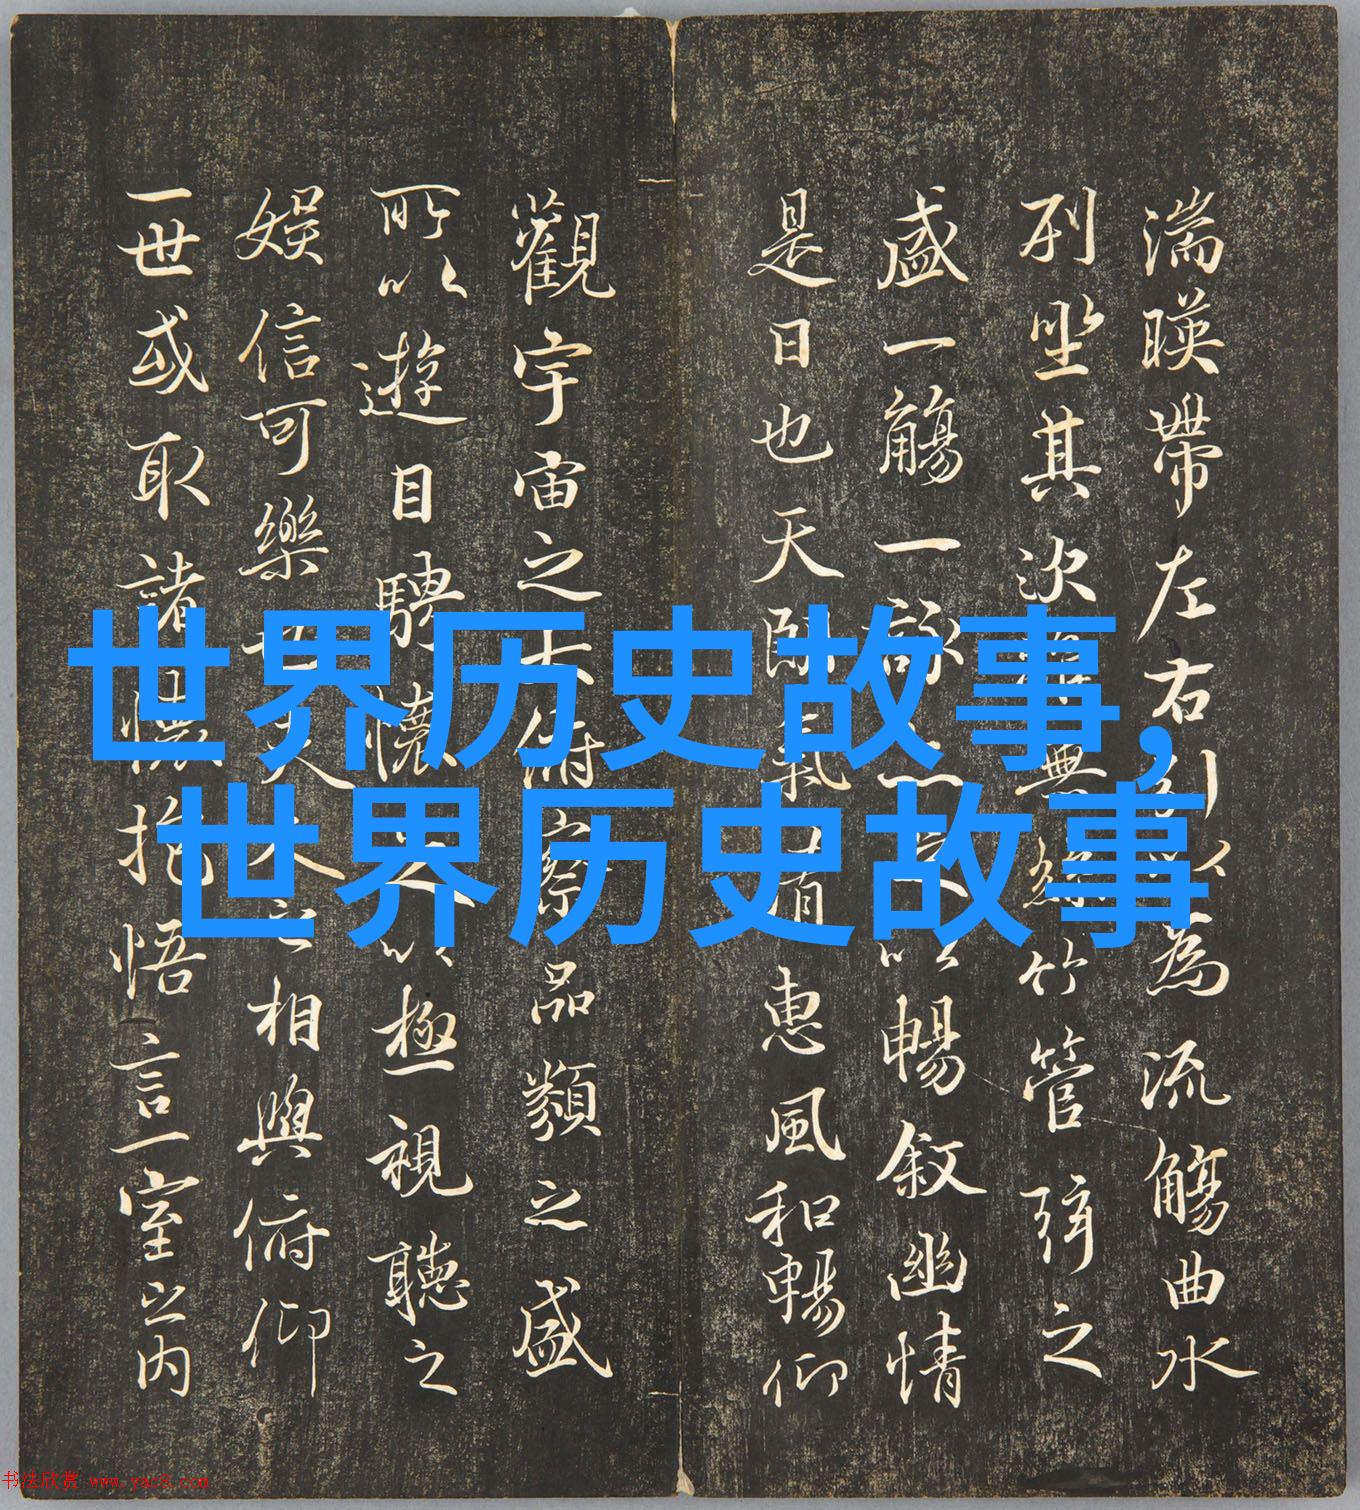 湍暎帶左右引以為流觴曲水
列坐其次雖無絲竹管弦之
盛一觴一詠以暢敘幽情
是日也天朗氣清惠風和暢仰
觀宇宙之大俯察品類之盛
所以遊目騁懷以極視聽之
娛信可樂也夫人之相與俯仰
一世或取諸懷抱悟言一室之内
世界历史故事,
世界历史故事
书法欣赏 www.yac8.com